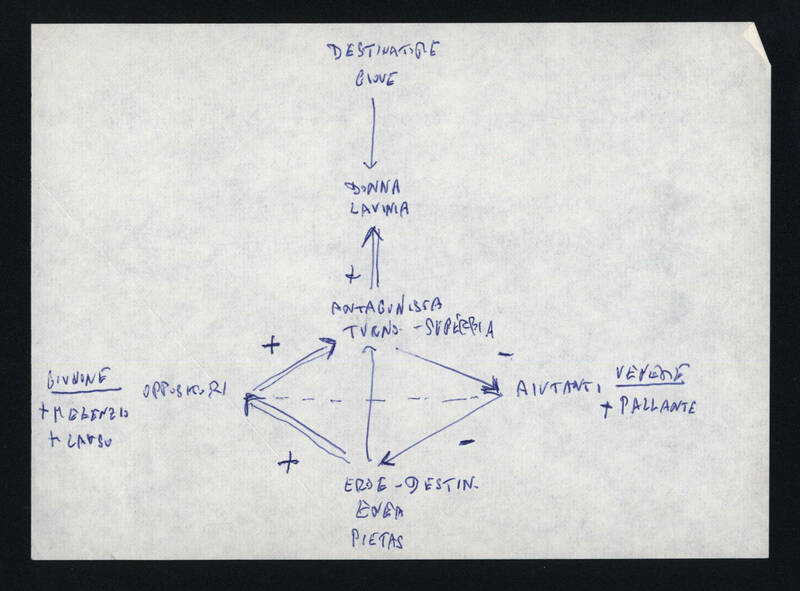 DESTINATORE
GIOVE
DONNA
LAVINIA
+
ANTAGONISTA
TURNO - SUPERBIA
+
-
GIUNONE
OPPOSITORI
+ MEZENZIO
+ LAUSO
AIUTANTI
VENERE
+ PALLANTE
+
-
EROE - DESTIN.
ENEA
PIETAS